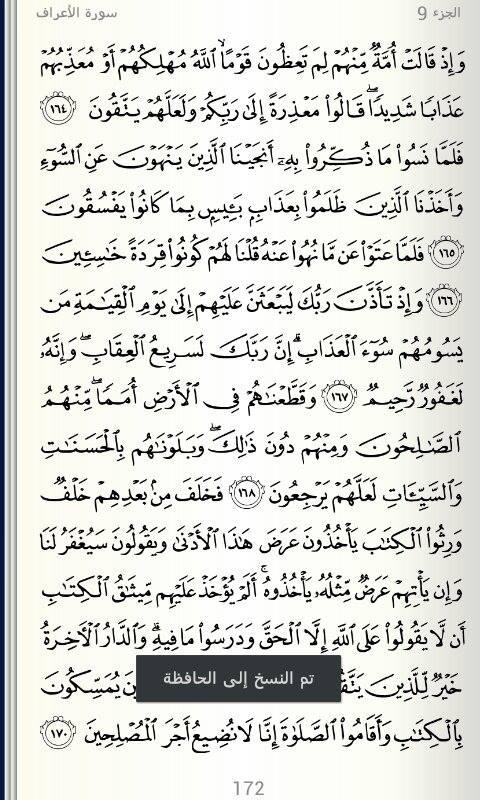 الجزء 9
سورة الأعراف
وَإِذْ قَالَتْ أُمَّةٌ مِّنْهُمْ لِمَ تَعِظُونَ قَوْمًا ۙ اللَّهُ مُهْلِكُهُمْ أَوْ مُعَذِّبُهُمْ
عَذَابًا شَدِيدًا ۖ قَالُوا مَعْذِرَةً إِلَىٰ رَبِّكُمْ وَلَعَلَّهُمْ يَتَّقُونَ ١٦٤
فَلَمَّا نَسُوا مَا ذُكِّرُوا بِهِ أَنجَيْنَا الَّذِينَ يَنْهَوْنَ عَنِ السُّوءِ
وَأَخَذْنَا الَّذِينَ ظَلَمُوا بِعَذَابٍ بَئِيسٍ بِمَا كَانُوا يَفْسُقُونَ
١٦٥ فَلَمَّا عَتَوْا عَن مَّا نُهُوا عَنْهُ قُلْنَا لَهُمْ كُونُوا قِرَدَةً خَاسِئِينَ
١٦٦ وَإِذْ تَأَذَّنَ رَبُّكَ لَيَبْعَثَنَّ عَلَيْهِمْ إِلَىٰ يَوْمِ الْقِيَامَةِ مَن
يَسُومُهُمْ سُوءَ الْعَذَابِ ۗ إِنَّ رَبَّكَ لَسَرِيعُ الْعِقَابِ ۖ وَإِنَّهُ
لَغَفُورٌ رَّحِيمٌ ١٦٧ وَقَطَّعْنَاهُمْ فِي الْأَرْضِ أُمَمًا ۖ مِّنْهُمُ
الصَّالِحُونَ وَمِنْهُمْ دُونَ ذَٰلِكَ ۖ وَبَلَوْنَاهُم بِالْحَسَنَاتِ
وَالسَّيِّئَاتِ لَعَلَّهُمْ يَرْجِعُونَ ١٦٨ فَخَلَفَ مِن بَعْدِهِمْ خَلْفٌ
وَرِثُوا الْكِتَابَ يَأْخُذُونَ عَرَضَ هَٰذَا الْأَدْنَىٰ وَيَقُولُونَ سَيُغْفَرُ لَنَا
وَإِن يَأْتِهِمْ عَرَضٌ مِّثْلُهُ يَأْخُذُوهُ ۚ أَلَمْ يُؤْخَذْ عَلَيْهِم مِّيثَاقُ الْكِتَابِ
أَن لَّا يَقُولُوا عَلَى اللَّهِ إِلَّا الْحَقَّ وَدَرَسُوا مَا فِيهِ ۗ وَالدَّارُ الْآخِرَةُ
خَيْرٌ لِّلَّذِينَ يُمَسِّكُونَ
تم النسخ إلى الحافظة
بِالْكِتَابِ وَأَقَامُوا الصَّلَاةَ إِنَّا لَا نُضِيعُ أَجْرَ الْمُصْلِحِينَ ١٧٠
172